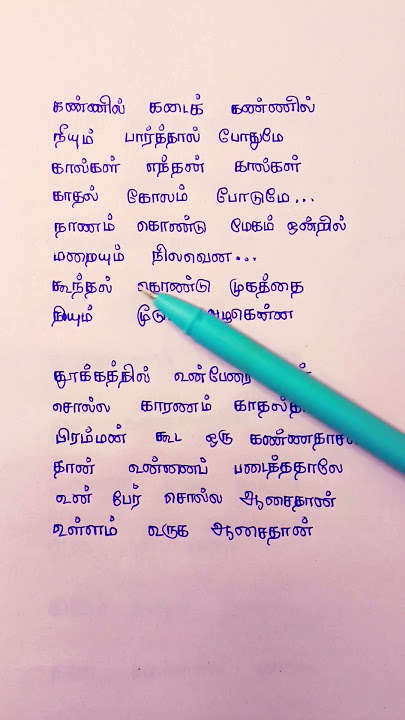 கண்ணில் கடைக் கண்ணில்
நீயும் பார்த்தால் போதுமே
கால்கள் எந்தன் கால்கள்
காதல் கோலம் போடுமே...
நாணம் கொண்டு மேகம் ஒன்றில்
மறையும் நிலவென...
கூந்தல் கொண்டு முகத்தை
நீயும்
தூக்கத்தில்
சொல்ல காரணம்
பிரம்மன் கூட ஒரு
தான் உன்னைப் படைத்ததாலே
உன் பேர் சொல்ல ஆசைதான்
உள்ளம் உருக ஆசைதான்